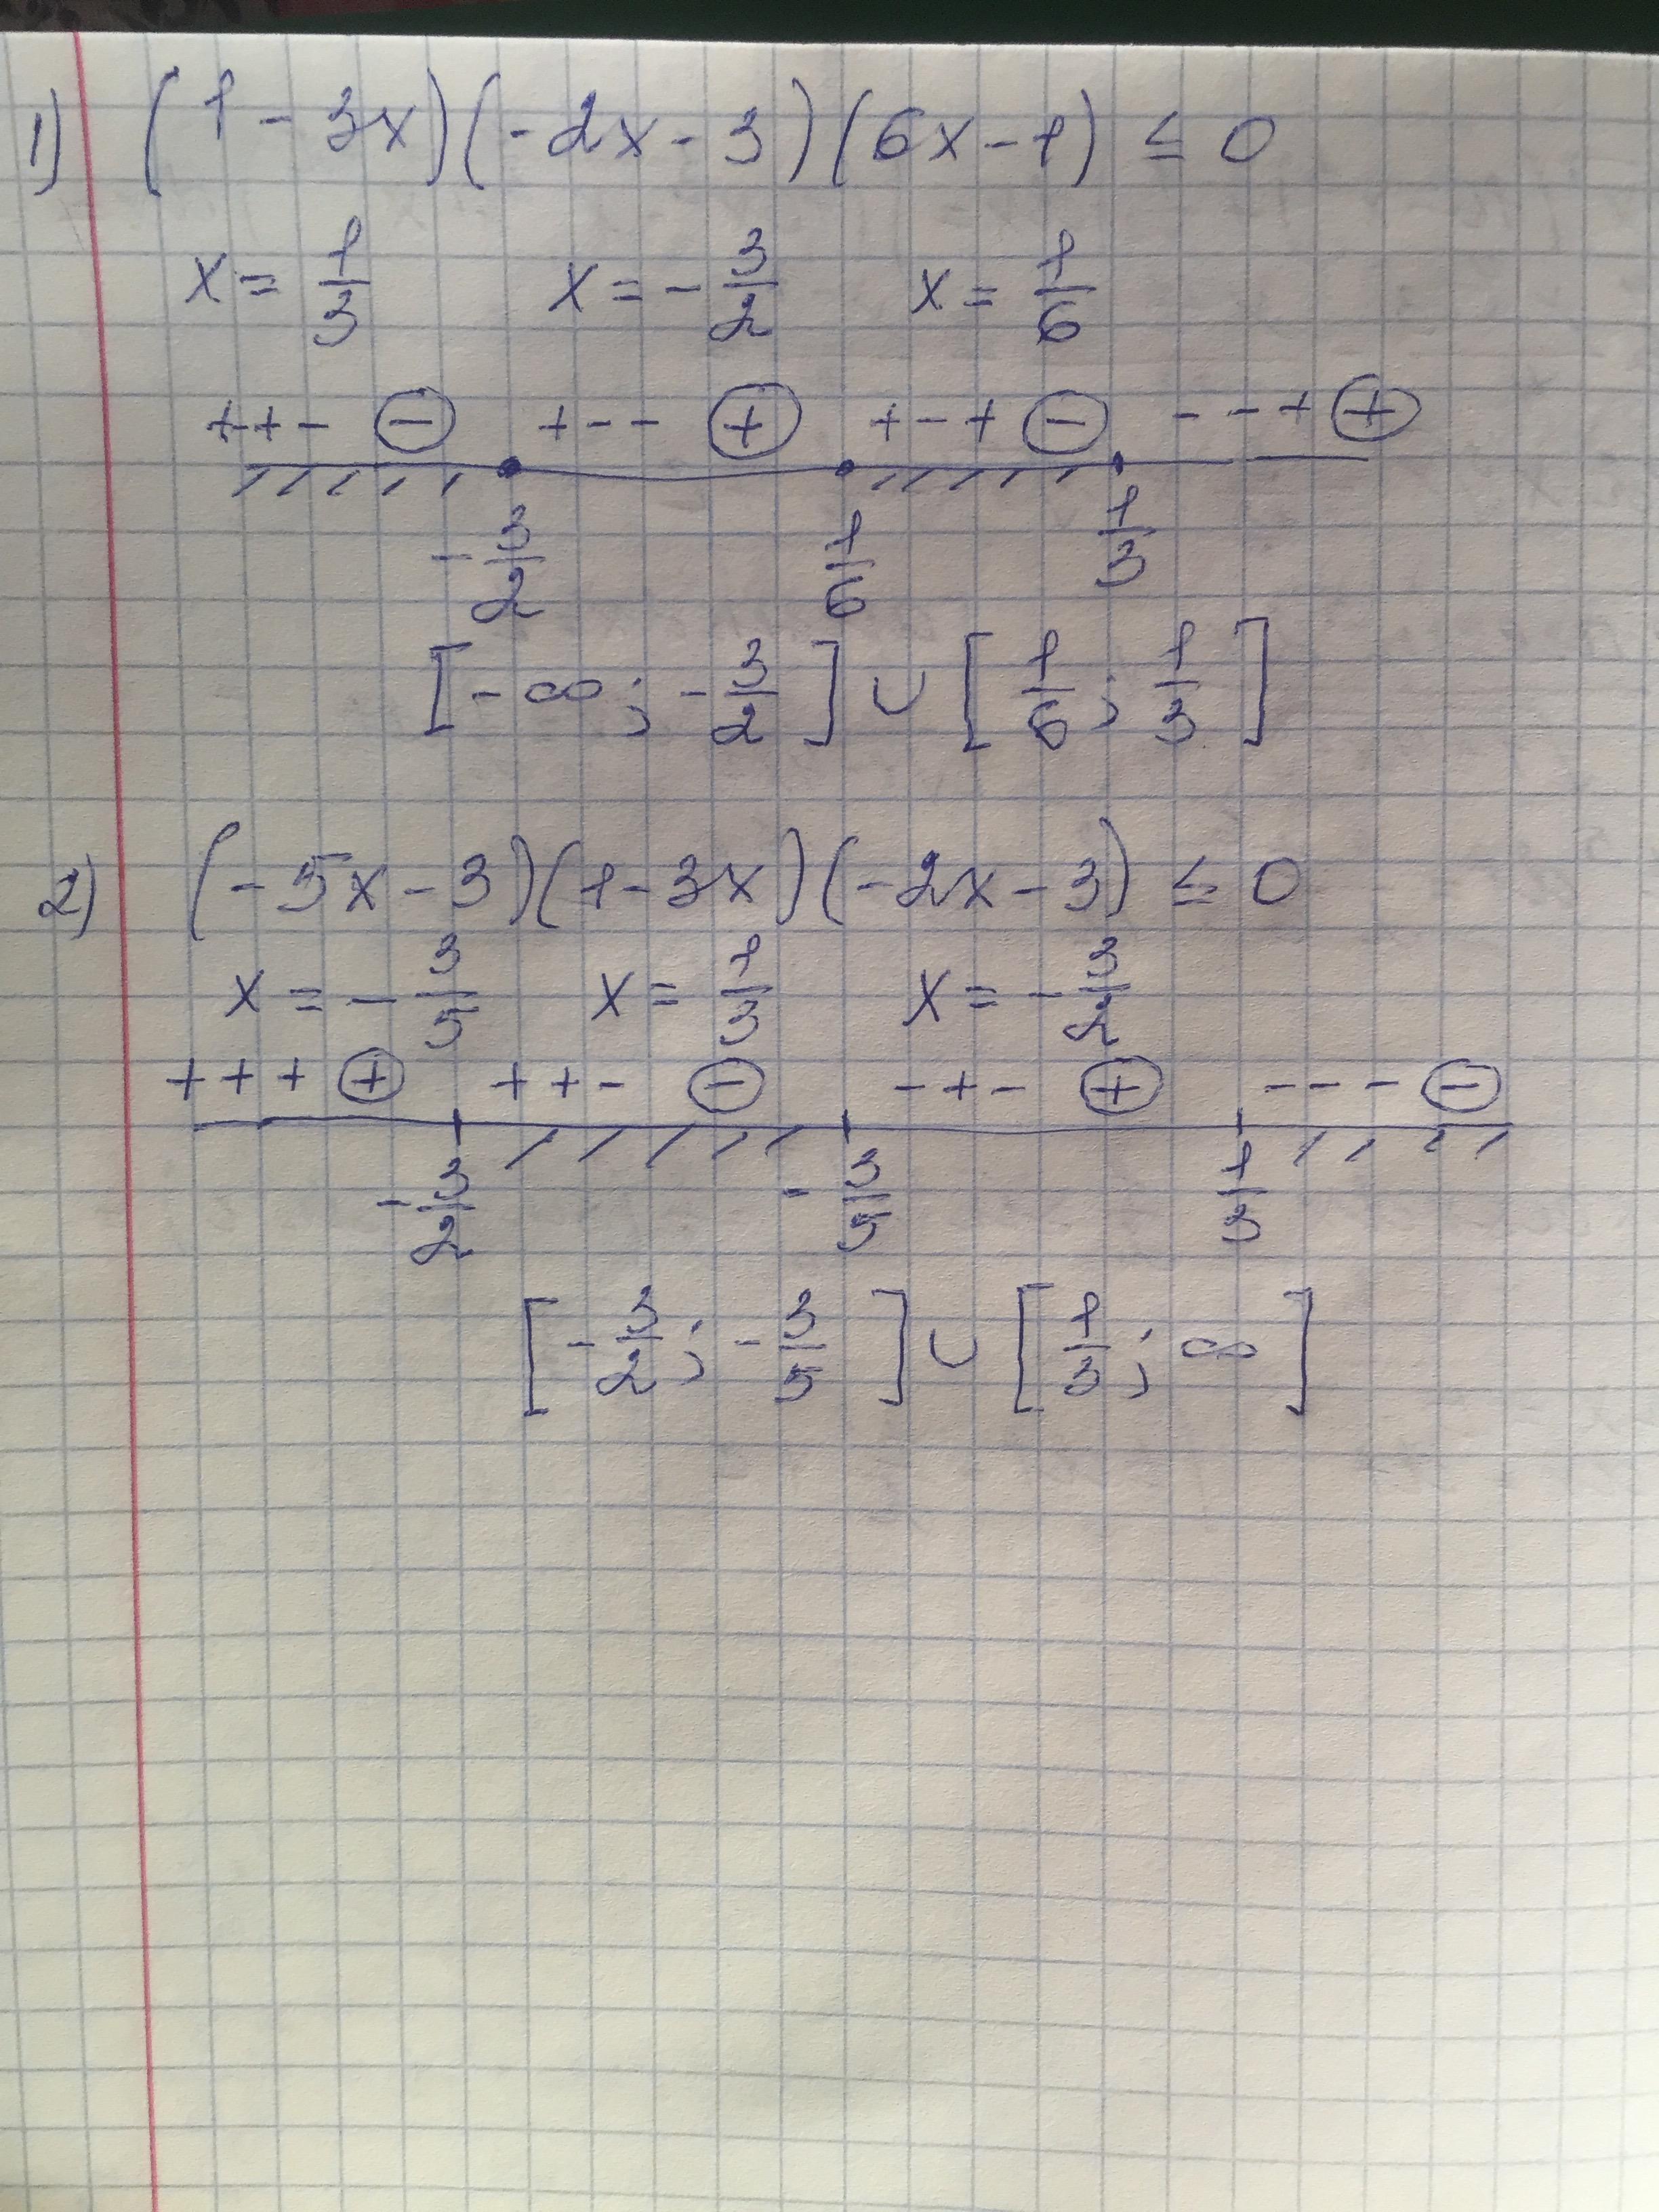 1) (1-3x)(-2x-3)(6x-1) ≤ 0
x = 1/3 x = -3/2 x = 1/6
++- ⊖ +-- ⊕ +-+ ⊖ --+ ⊕
-3/2 1/6 1/3
[-∞; -3/2] ∪ [1/6; 1/3]
2) (-5x-3)(1-3x)(-2x-3) ≤ 0
x = -3/5 x = 1/3 x = -3/2
+++ ⊕ ++- ⊖ -+- ⊕ --- ⊖
-3/2 -3/5 1/3
[-3/2; -3/5] ∪ [1/3; ∞]